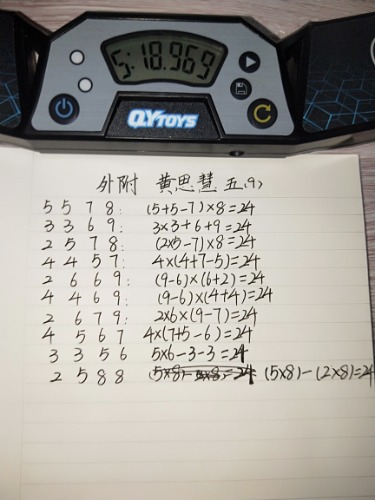 5:18.969
QYTOYS
外附 黄思慧 五(9)
5 5 7 8: (5+5-7)×8=24
3 3 6 9: 3×3+6+9=24
2 5 7 8: (2×5-7)×8=24
4 4 5 7: 4×(4+7-5)=24
2 6 6 9: (9-6)×(6+2)=24
4 4 6 9: (9-6)×(4+4)=24
2 6 7 9: 2×6×(9-7)=24
4 5 6 7 4×(7+5-6)=24
3 3 5 6 5×6-3-3=24
2 5 8 8 (5×8)-(2×8)=24